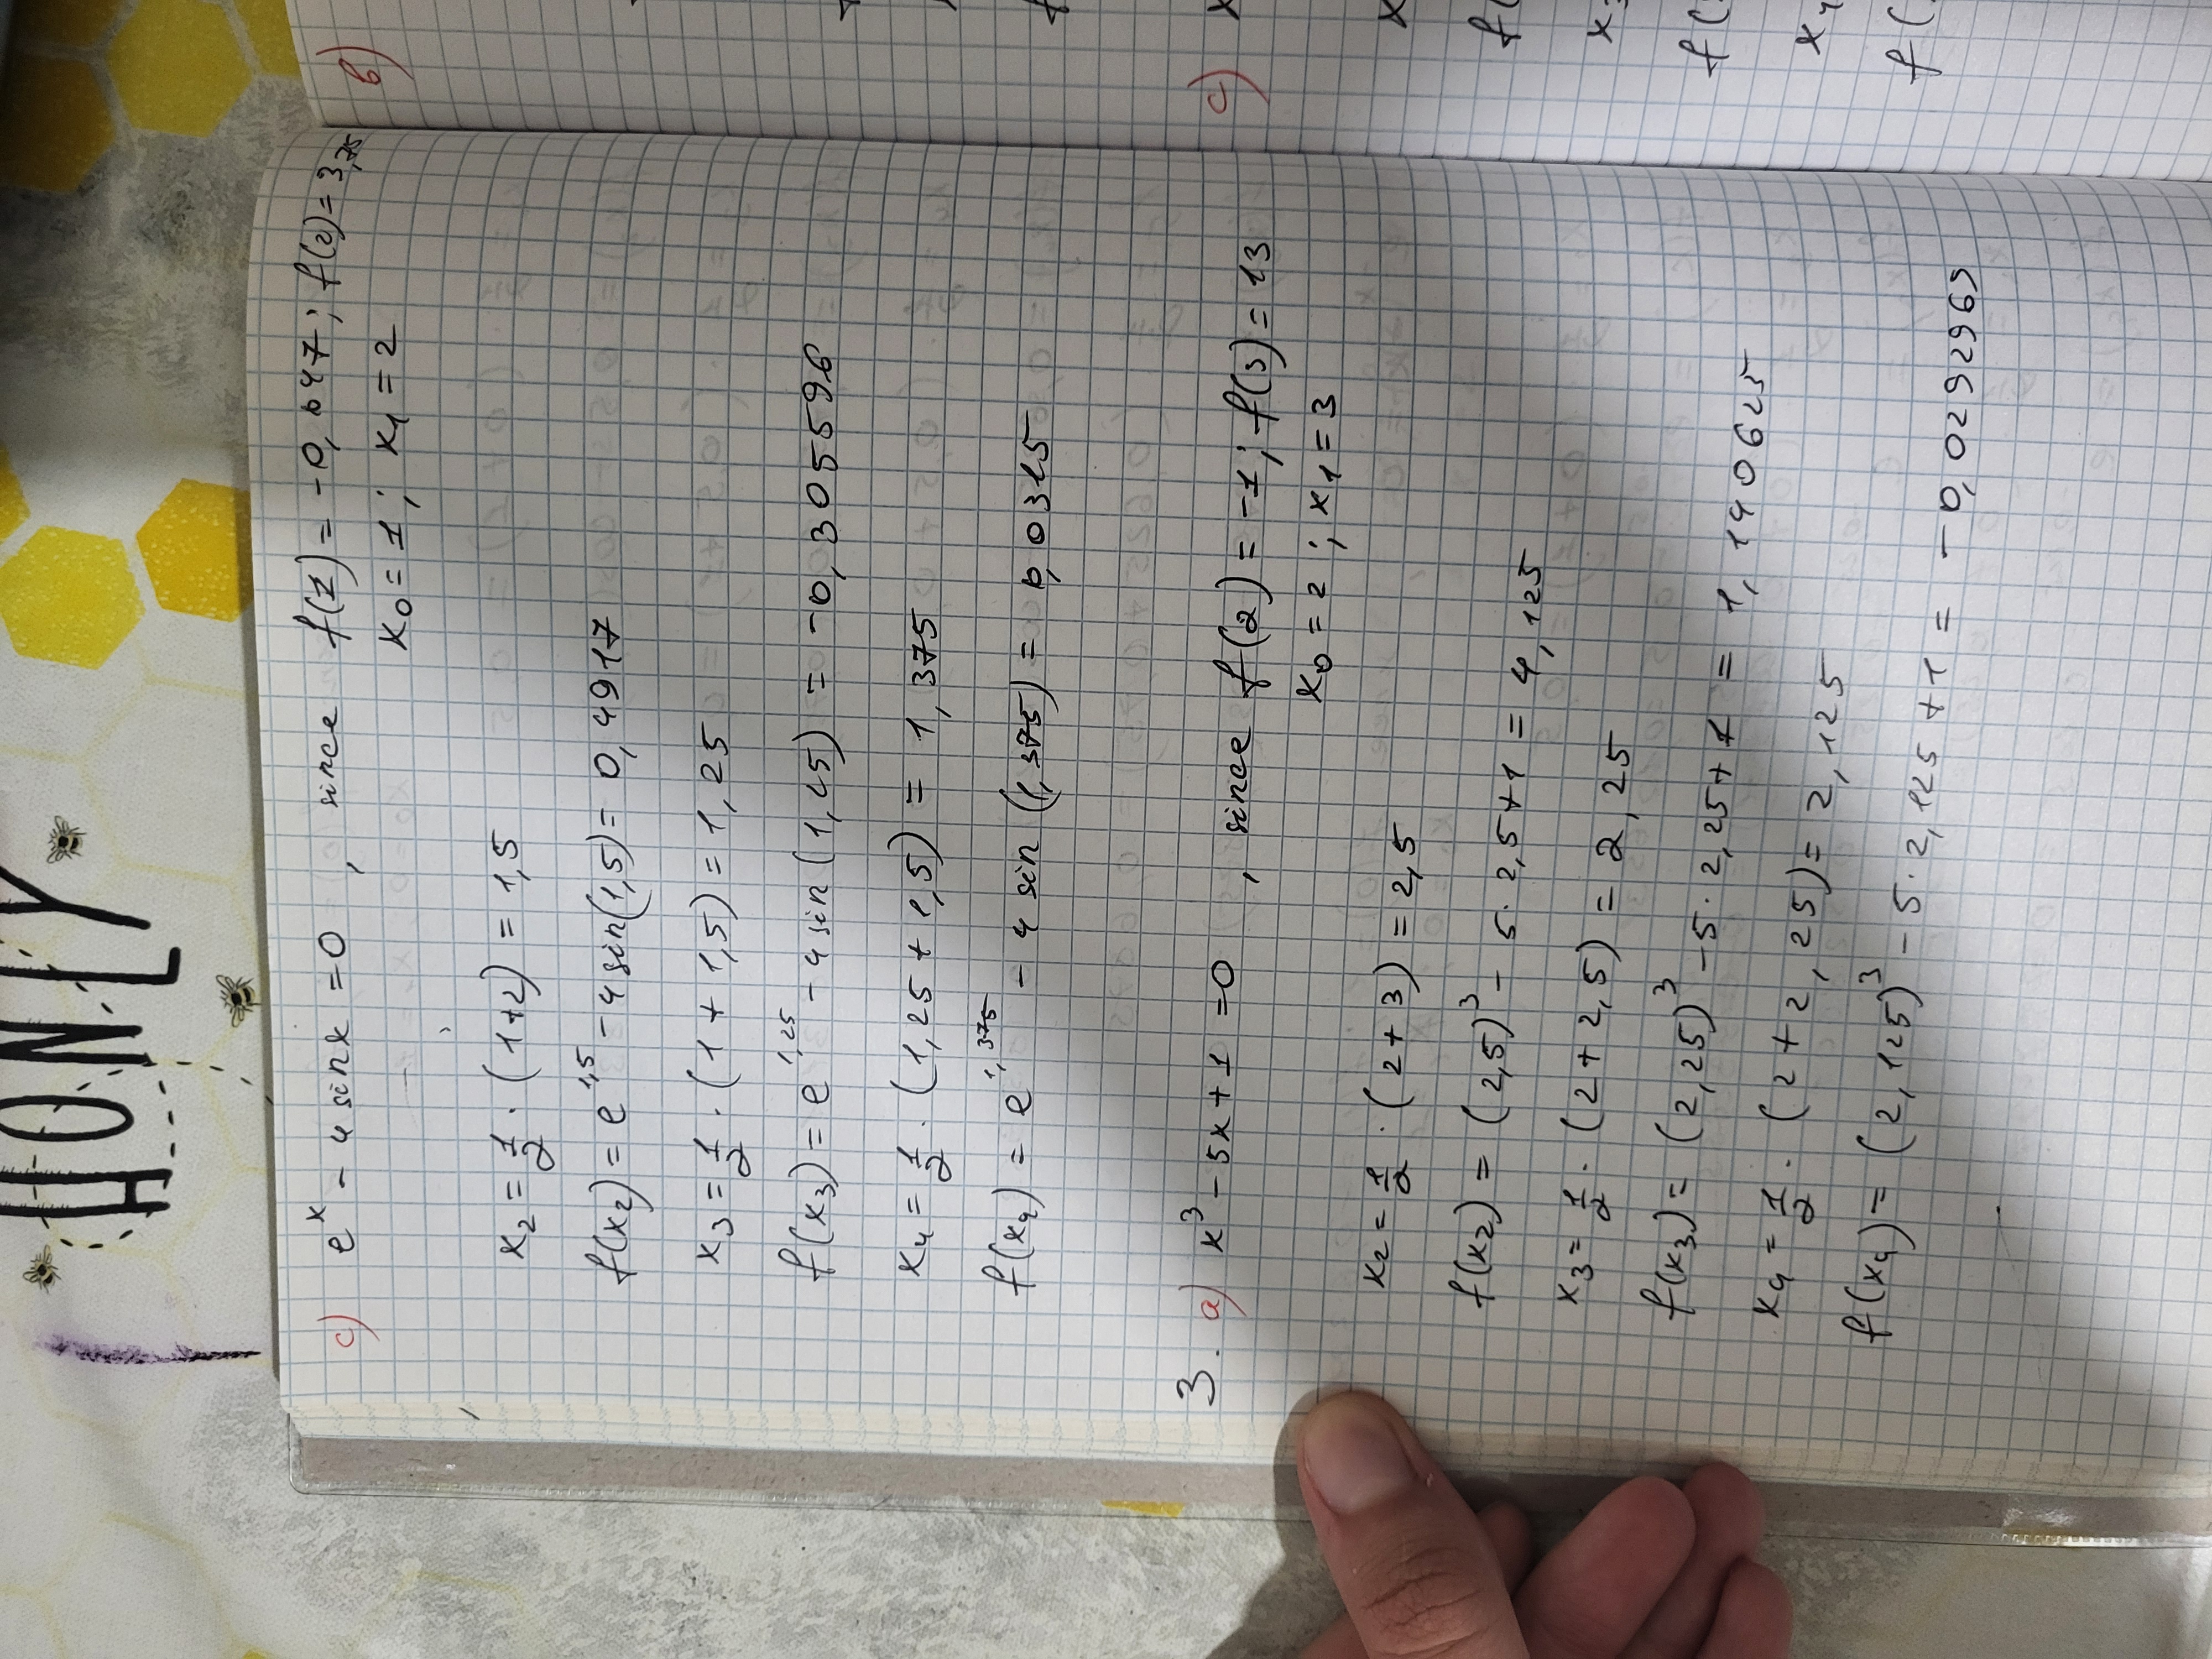 HONEY
c) e^x - 4 sin x = 0 , since f(1) = -0,647; f(2) = 3,75
x₀ = 1 ; x₁ = 2
x₂ = 1/2 · (1+2) = 1,5
f(x₂) = e^1,5 - 4 sin(1,5) = 0,4917
x₃ = 1/2 · (1 + 1,5) = 1,25
f(x₃) = e^1,25 - 4 sin (1,25) = -0,305596
x₄ = 1/2 · (1,25 + 1,5) = 1,375
f(x₄) = e^1,375 - 4 sin (1,375) = 0,0315
3. a) x³ - 5x + 1 = 0 , since f(2) = -1; f(3) = 13
x₀ = 2 ; x₁ = 3
x₂ = 1/2 · (2 + 3) = 2,5
f(x₂) = (2,5)³ - 5 · 2,5 + 1 = 4,125
x₃ = 1/2 · (2 + 2,5) = 2,25
f(x₃) = (2,25)³ - 5 · 2,25 + 1 = 1,140625
x₄ = 1/2 · (2 + 2,25) = 2,125
f(x₄) = (2,125)³ - 5 · 2,125 + 1 = -0,0292969
b)
c) x
x
f(
x₃
f(
x₄
f(